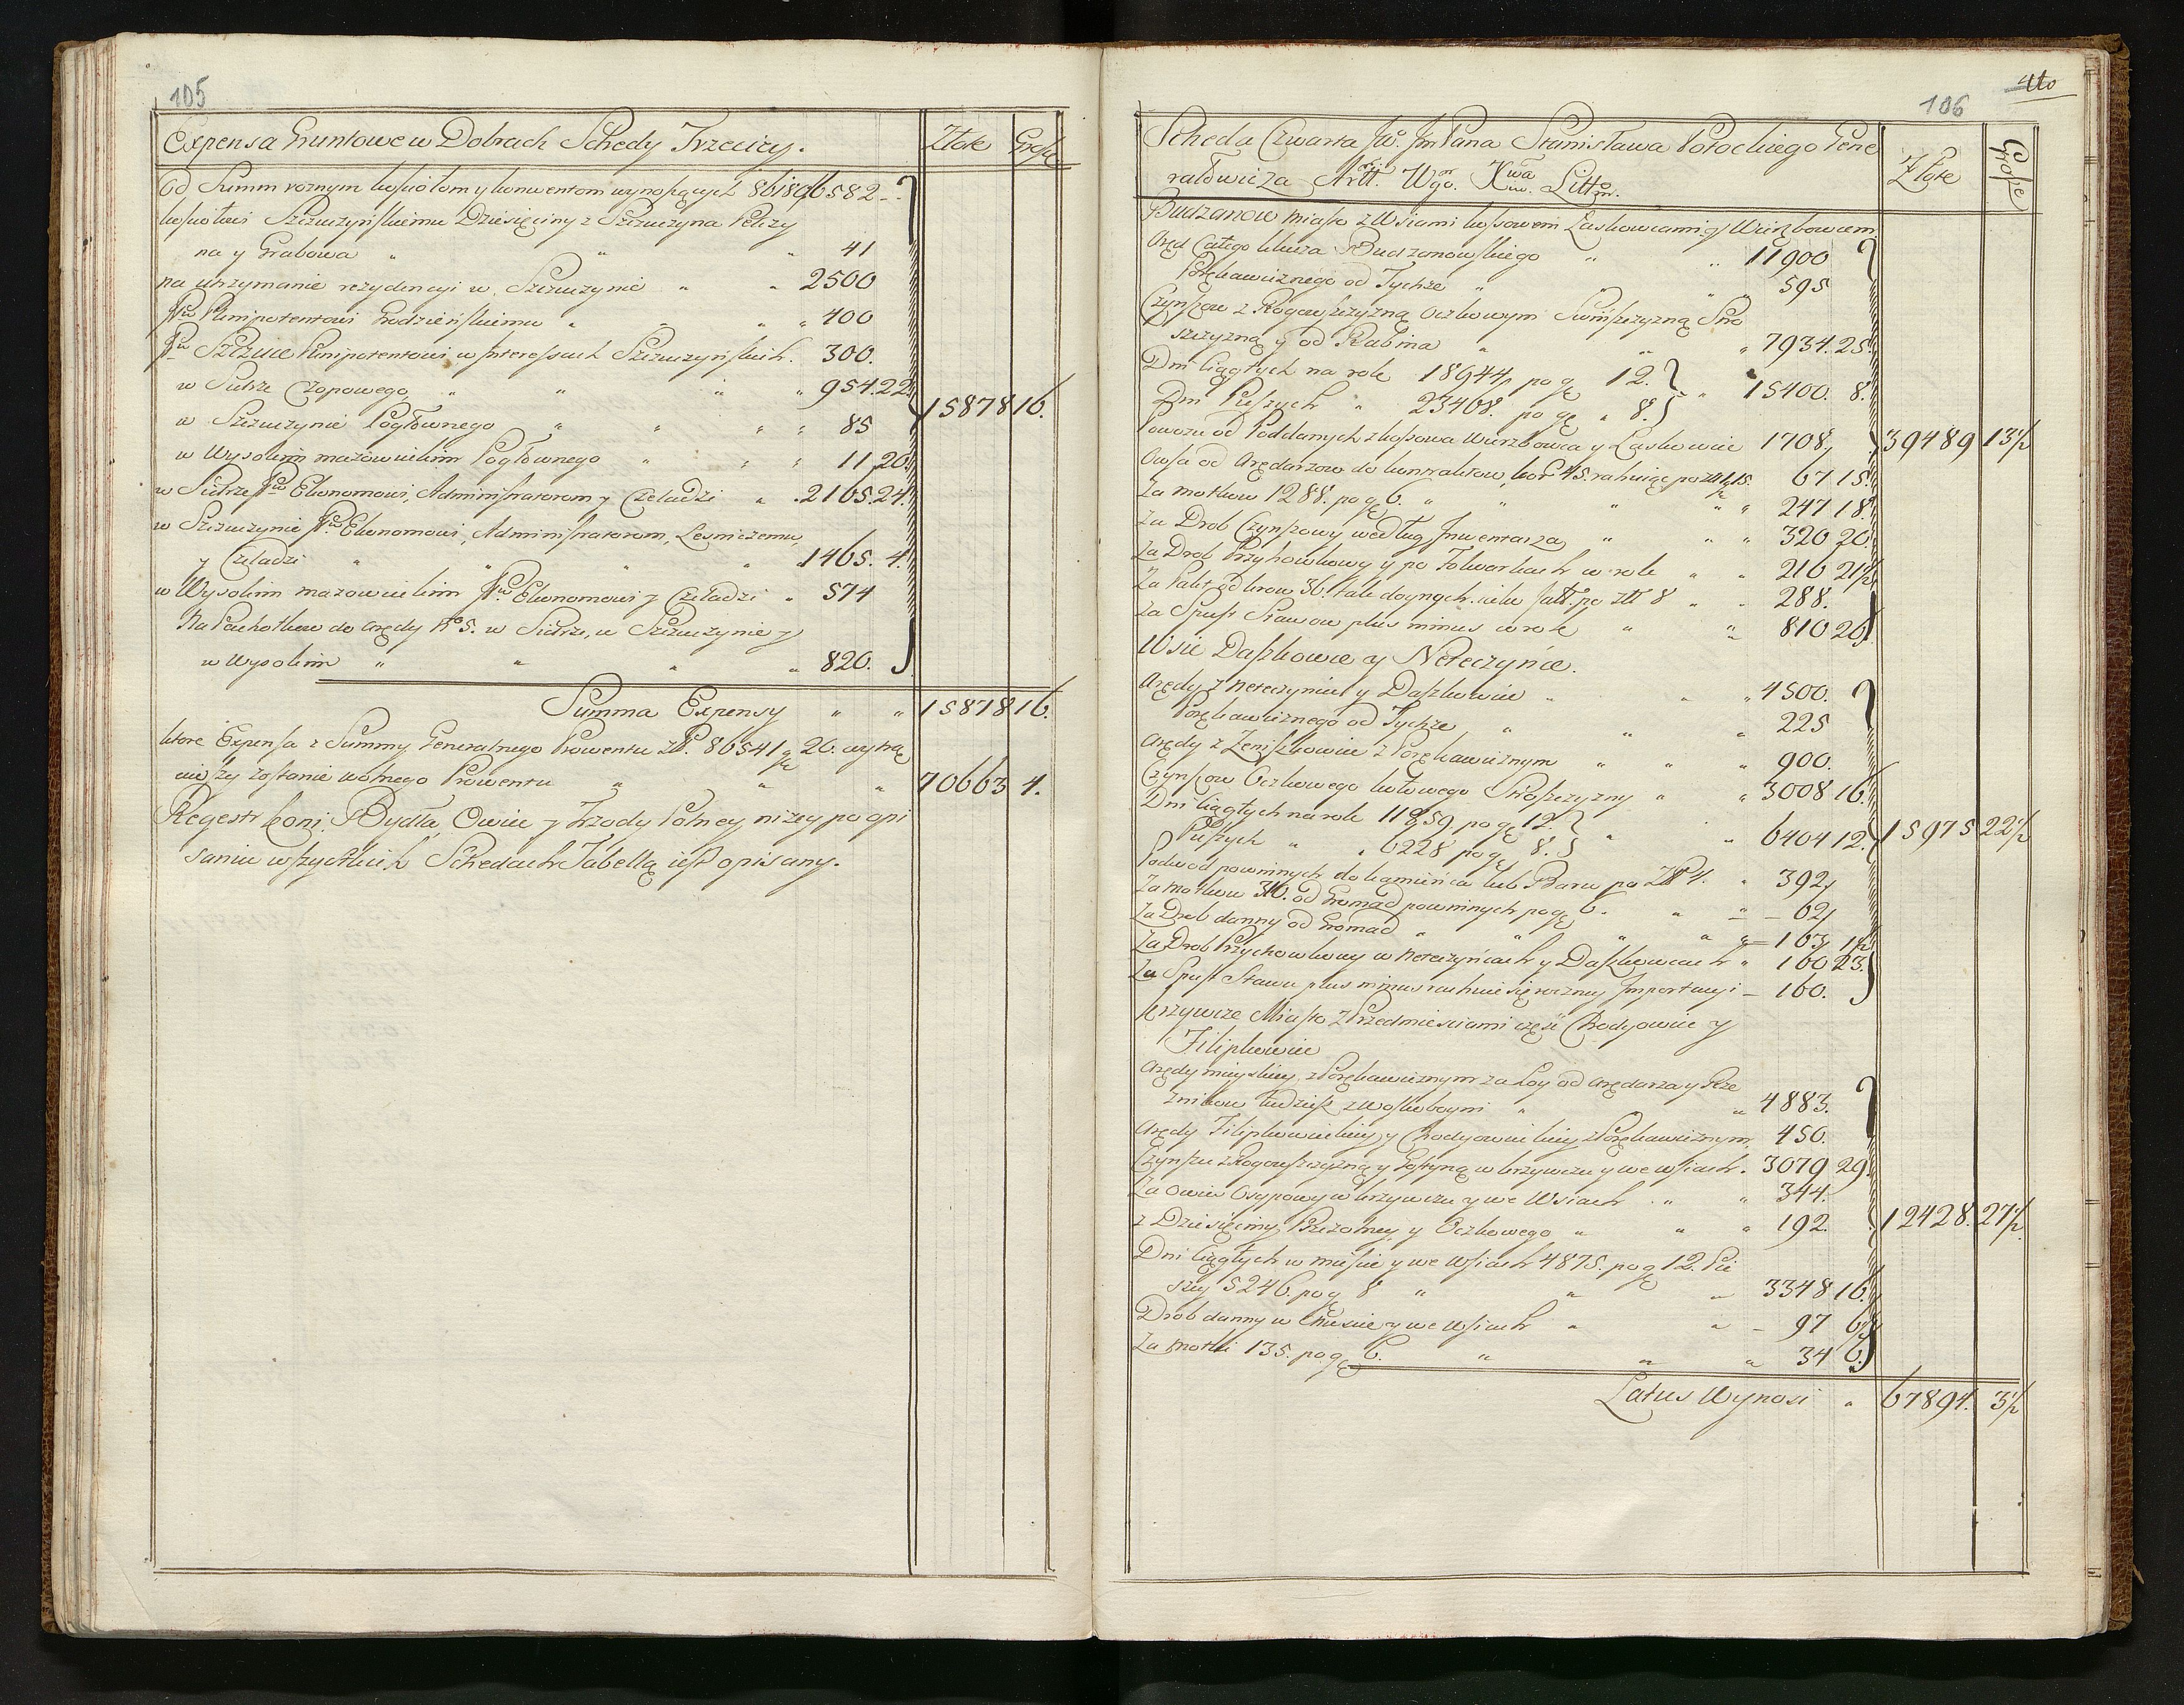 105
Expensa Gruntowe w Dobrach Schedy Trzeciey. Złote Grosze
Od Summ roznym kosciołom y konwentom wynoszących 6582
kosciołowi Szczuczynskiemu Dziesięciny z Szczuczyna
na y Grabowa " " " 41
na utrzymanie rezydencyi w Szczuczynie " " 2500
Plenipotentowi Grodzieńskiemu " " " 400
Plenipotentowi w Interessach Szczuczynskich. 300.
w Sidrze Czopowego " " " " 954.22.
w Szczuczynie Pogłownego " " " " 85 15878 16.
w Wysokim mazowieckim Pogłownego " " " 11 20.
w Sidrze Ekonomowi, Administratorom y Czeladzi " 2165.24.
w Szczuczynie Ekonomowi, Administratorom, Lesniczemu,
y Czeladzi " " " " 1465. 4.
w Wysokim mazowieckim Ekonomowi y Czeladzi " 574
Na Pachołkow do Arędy No 5. w Sidrze, w Szczuczynie y
w Wysokim " " " " 820.
Summa Expensy " " 15878 16.
ktore Expensa z Summy Generalnego Prowentu złł. 86541 g 20. wytrą
ciwszy zostanie wolnego Prowentu " " " 70663 4.
Regestr koni, Bydła, Owiec y Trzody Polney nizey po opi
saniu wszystkich Schedach Tabellą iest opisany.
106
Scheda Czwarta JW. Jm Pana Stanisława Potockiego Gene Złote Grosze
rałowicza Artt. Litt.
Budzanow miasto z Wsiami kossowem Laskowcami y Wierzbowcem
Aręd Całego klucza Budzanowskiego " " 11900
Porękawicznego od Tychże " " " 595
Czynszow z Rogowszczyzną Oczkowym
szczyzną y od Rabina " " " 7934.25.
Dni Ciągłych na rok 18644 po g 12. " 15400. 8.
Dni Pieszych " 23468. po g " 8.
Powozu od Poddanych z kossowa Wierzbowca y Laskowiec 1708 39489 13½
Owsa od Arędarzow do kontraktow, kor. 45. rachuiąc po 67 15.
Za motkow 1288. po g 6. " " " " " 247 18
Za Drob Czynszowy według Inwentarza " " " 320 20
Za Drob Przychowkowy y po Folwarkach w rok " " 216 21½
Za Pakt od krow 36. tak doynych iako po złł 8 " " 288.
Za Spust Stawow plus minus w rok " " 810 20
Wsie Daszkowce y Neteczyńce.
Arędy z Neteczyniec y Daszkowiec " " " 4500.
Porękawicznego od Tychże " " " 225
Arędy z Zeniszkowiec z Porękawicznym " " " 900.
Czynszow Oczkowego " " 3008 16.
Dni Ciągłych na rok 11859. po g 12. " " 6404 12. 15975 22½
Pieszych " " 6228 po g 8.
Podwod powinnych do kamieńca lub Baru po Złł 4. " 392
Za motkow 310. od Gromad powinnych po g 6. " " 62
Za Drob danny od Gromad " " " " " 163 1½
Za Drob Przychowkowy w Neteczyńcach y Daszkowcach " 160 23.
Za Spust Stawu plus minus rachuie się roczney Importacyi 160.
krzywcze Miasto z Przedmiesciami część Chodyowiec y
Filipkowiec
Arędy mieyskiey z Porękawicznym za Łoy od Arędarza y Rze
znikow tudzież z Woskoboyni " " 4883.
Arędy Filipkowieckiey y Chodyowieckiey z Porękawicznym 450.
Czynszu z Rogowszczyzną y w krzywczu y we wsiach. 3079 29.
Za Owies Osypowy w krzywczu y we Wsiach " " 344.
z Dziesięciny Pszczolney y Oczkowego " " " 192. 12428. 27½
Dni Ciągłych w miescie y we Wsiach 4875. po g 12. Pie
szey 5246. po g 8 " " " 3348 16.
Drob danny w Miescie y we Wsiach " " 97 6½
Za motki 135. po g 6. " " " 34 6.
Latus Wynosi " 67894. 3½